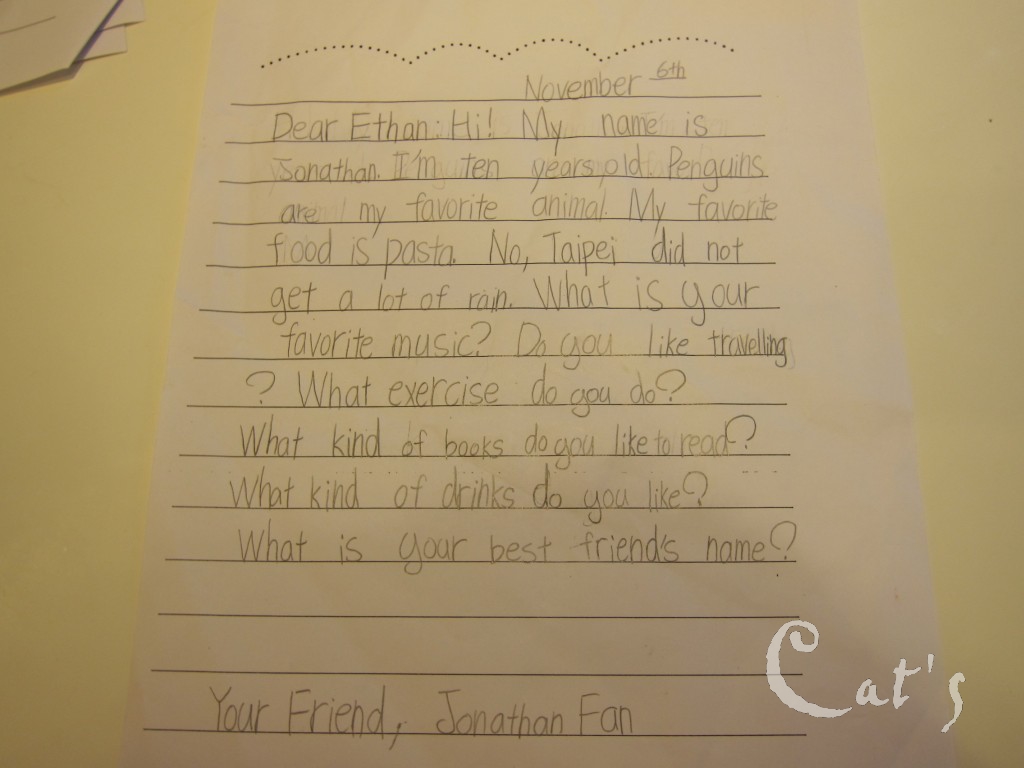 November 6th
Dear Ethan: Hi! My name is
Jonathan. I'm ten years old. Penguins
are my favorite animal. My favorite
food is pasta. No, Taipei did not
get a lot of rain. What is your
favorite music? Do you like travelling
? What exercise do you do?
What kind of books do you like to read?
What kind of drinks do you like?
What is your best friend's name?
Your Friend, Jonathan Fan
Cat's